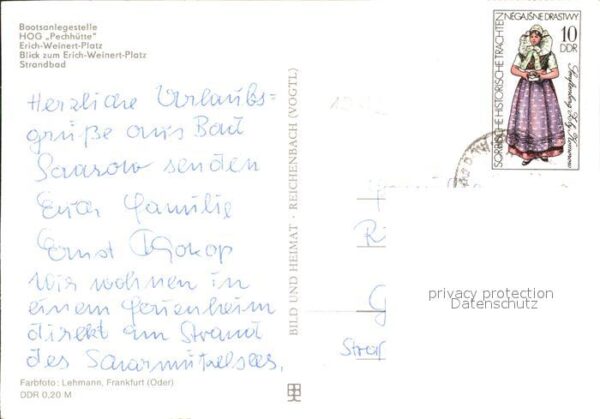 Bootsanlegestelle
HOG „Pechhütte"
Erich-Weinert-Platz
Blick zum Erich-Weinert-Platz
Strandbad
Herzliche Urlaubs-
grüße aus Bad
Saarow senden
Euch Familie
Ernst
Wir wohnen in
einem Ferienheim
direkt am Strand
des Scharmützelsees.
Farbfoto: Lehmann, Frankfurt (Oder)
DDR 0,20 M
BILD UND HEIMAT · REICHENBACH (VOGTL)
SORBISCHE HISTORISCHE TRACHTEN
NEGAJŠNE DRASTWY
10
DDR
privacy protection
Datenschutz